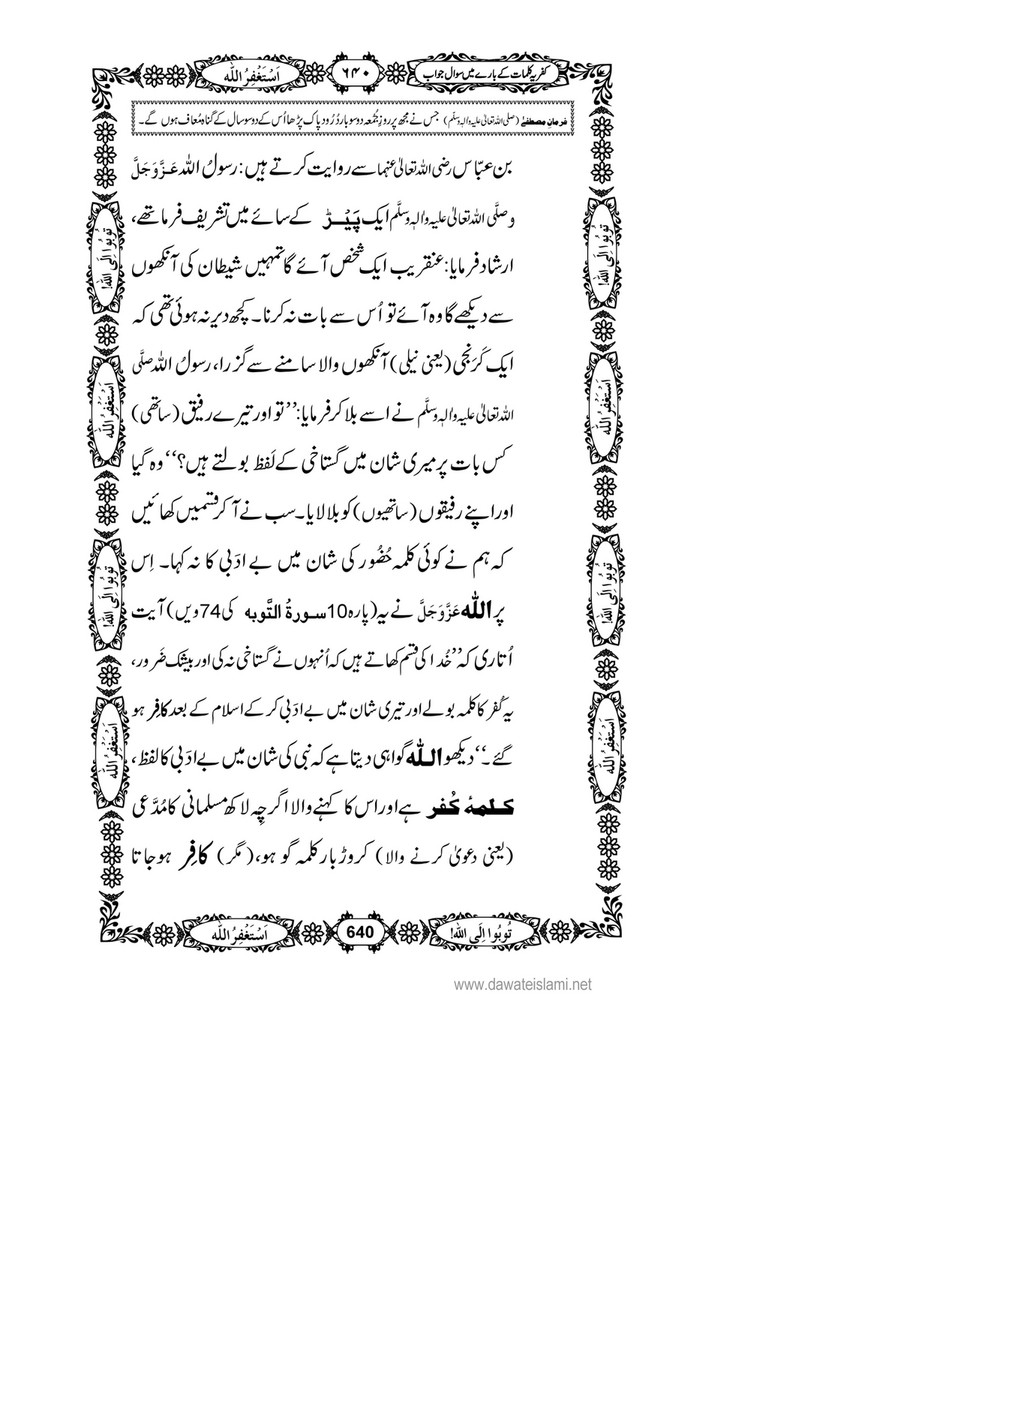 کفریہ کلمات کے بارے میں سوال جواب ٦٤٠ اَسْتَغْفِرُ اللّٰه
فرمانِ مصطفےٰ (صلی اللہ تعالیٰ علیہ والہٖ وسلّم) جس نے مجھ پر روزِ جُمُعہ دو سو بار دُرُود پاک پڑھا اُس کے دو سو سال کے گناہ مُعاف ہوں گے۔
بن عبّاس رضی اللہ تعالیٰ عنہما سے روایت کرتے ہیں: رسولُ اللہ عَزَّوَجَلَّ
وصلَّی اللہ تعالیٰ علیہ والہٖ وسلَّم ایک پَیْڑ کے سائے میں تشریف فرما تھے،
ارشاد فرمایا: عنقریب ایک شخص آئے گا تمہیں شیطان کی آنکھوں
سے دیکھے گا وہ آئے تو اُس سے بات نہ کرنا۔ کچھ دیر نہ ہوئی تھی کہ
ایک کَرَنجی (یعنی نیلی) آنکھوں والا سامنے سے گزرا، رسولُ اللہ صلَّی
اللہ تعالیٰ علیہ والہٖ وسلَّم نے اسے بلا کر فرمایا: ’’تو اور تیرے رفیق (ساتھی)
کس بات پر میری شان میں گستاخی کے لَفظ بولتے ہیں؟‘‘ وہ گیا
اور اپنے رفیقوں (ساتھیوں) کو بلا لایا۔ سب نے آ کر قسمیں کھائیں
کہ ہم نے کوئی کلمہ حُضُور کی شان میں بے ادَبی کا نہ کہا۔ اِس
پر اللّٰه عَزَّوَجَلَّ نے یہ (پارہ 10 سورةُ التَّوبه کی 74 ویں) آیت
اُتاری کہ ’’خُدا کی قسم کھاتے ہیں کہ اُنہوں نے گستاخی نہ کی اور بیشک ضَرور،
یہ کُفر کا کلمہ بولے اور تیری شان میں بے ادَبی کر کے اسلام کے بعد کافِر ہو
گئے۔‘‘ دیکھو اللّٰه گواہی دیتا ہے کہ نبی کی شان میں بے ادَبی کا لفظ،
کلمۂ کُفر ہے اور اس کا کہنے والا اگرچِہ لاکھ مسلمانی کا مُدَّعی
(یعنی دعویٰ کرنے والا) کروڑ بار کلمہ گو ہو، (مگر) کافِر ہو جاتا
تُوبُوا اِلَی اللّٰه!
اَسْتَغْفِرُ اللّٰه
تُوبُوا اِلَی اللّٰه!
اَسْتَغْفِرُ اللّٰه
تُوبُوا اِلَی اللّٰه!
اَسْتَغْفِرُ اللّٰه
تُوبُوا اِلَی اللّٰه!
اَسْتَغْفِرُ اللّٰه
تُوبُوا اِلَی اللّٰه! 640 اَسْتَغْفِرُ اللّٰه
www.dawateislami.net